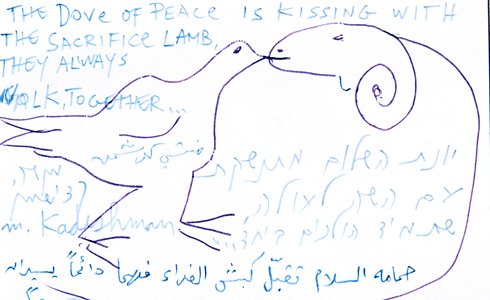 THE DOVE OF PEACE IS KISSING WITH
THE SACRIFICE LAMB,
THEY ALWAYS
WOLK, TOGETHER...
יונת השלום מתנשקת
עם השה לעולה,
שתמיד הולכים ביחד...
מנשה
קדישמן
m. Kadishman
حمامه السلام تقبّل كبش الفداء فهما دائماً يسيران